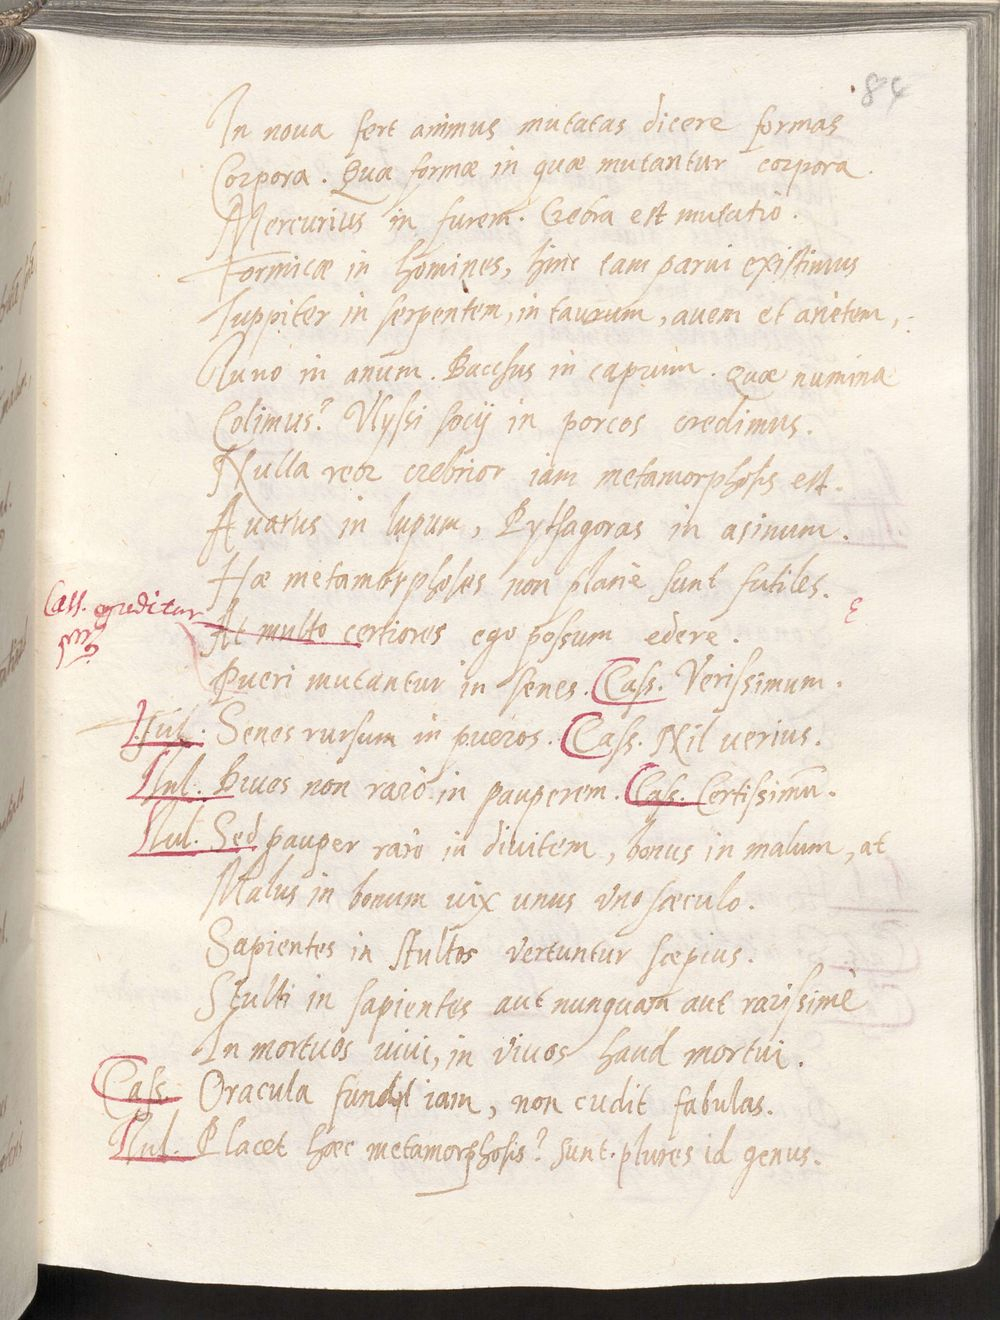 84
In noua fert animus mutatas dicere formas
Corpora. Quæ formæ in quæ mutantur corpora.
Mercurius in furem. Crebra est mutatio.
Formicæ in homines, hinc tam parui existimus
Iuppiter in serpentem, in taurum, auem et arietem,
Iuno in anum. Bacchus in caprum. Quæ numina
Colimus? Vlyssi socij in porcos credimus.
Nulla reor crebrior iam metamorphosis est.
Auarus in lupum, Pythagoras in asinum.
Hæ metamorphoses non planè sunt futiles.
Cass. egreditur
At multo certiores ego possum edere.
Pueri mutantur in senes. Cass. Verissimum.
Nul. Senes rursum in pueros. Cass. Nil uerius.
Nul. Diues non rarò in pauperem. Cass. Certissimũ.
Nul. Sed pauper rarò in diuitem, bonus in malum, at
Malus in bonum uix unus vno sæculo.
Sapientes in stultos vertuntur sæpius.
Stulti in sapientes aut nunquam aut rarissimè
In mortuos uiui, in viuos haud mortui.
Cass. Oracula fundit iam, non cudit fabulas.
Nul. Placet hæc metamorphosis? sunt plures id genus.